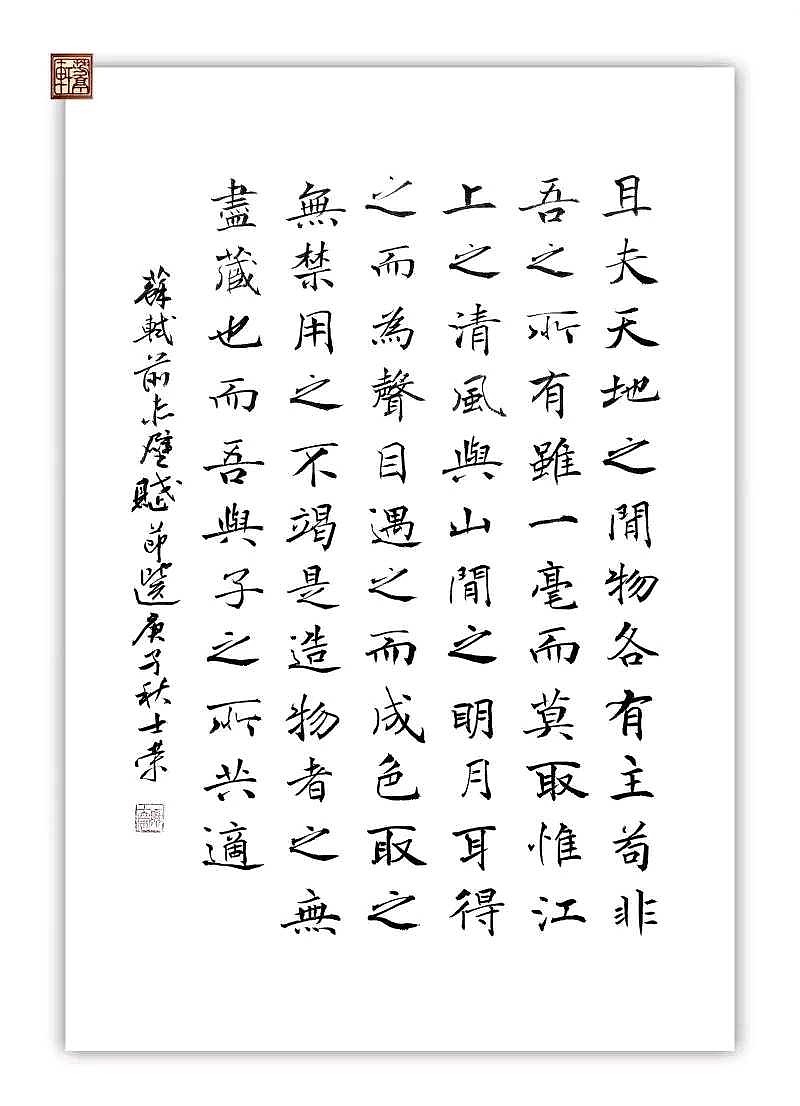 且夫天地之閒物各有主苟非
吾之所有雖一毫而莫取惟江
上之清風與山閒之明月耳得
之而為聲目遇之而成色取之
無禁用之不竭是造物者之無
盡藏也而吾與子之所共適
蘇軾前赤壁賦節選庚子秋士榮